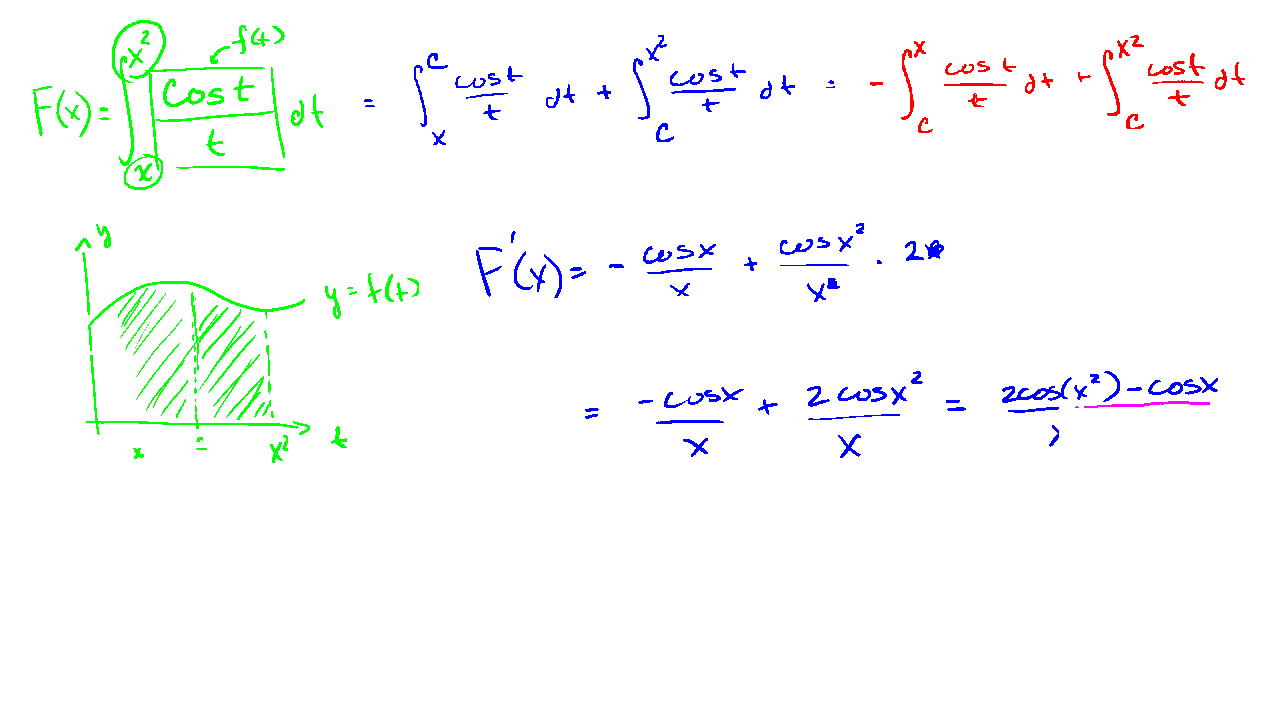 F(x) = ∫_x^{x²} cos t / t dt = ∫_x^c cos t / t dt + ∫_c^{x²} cos t / t dt = - ∫_c^x cos t / t dt + ∫_c^{x²} cos t / t dt
f(t)
y
y = f(t)
x = x² t
F'(x) = - cos x / x + cos x² / x · 2
= -cos x / x + 2 cos x² / x = 2cos(x²) - cos x / x